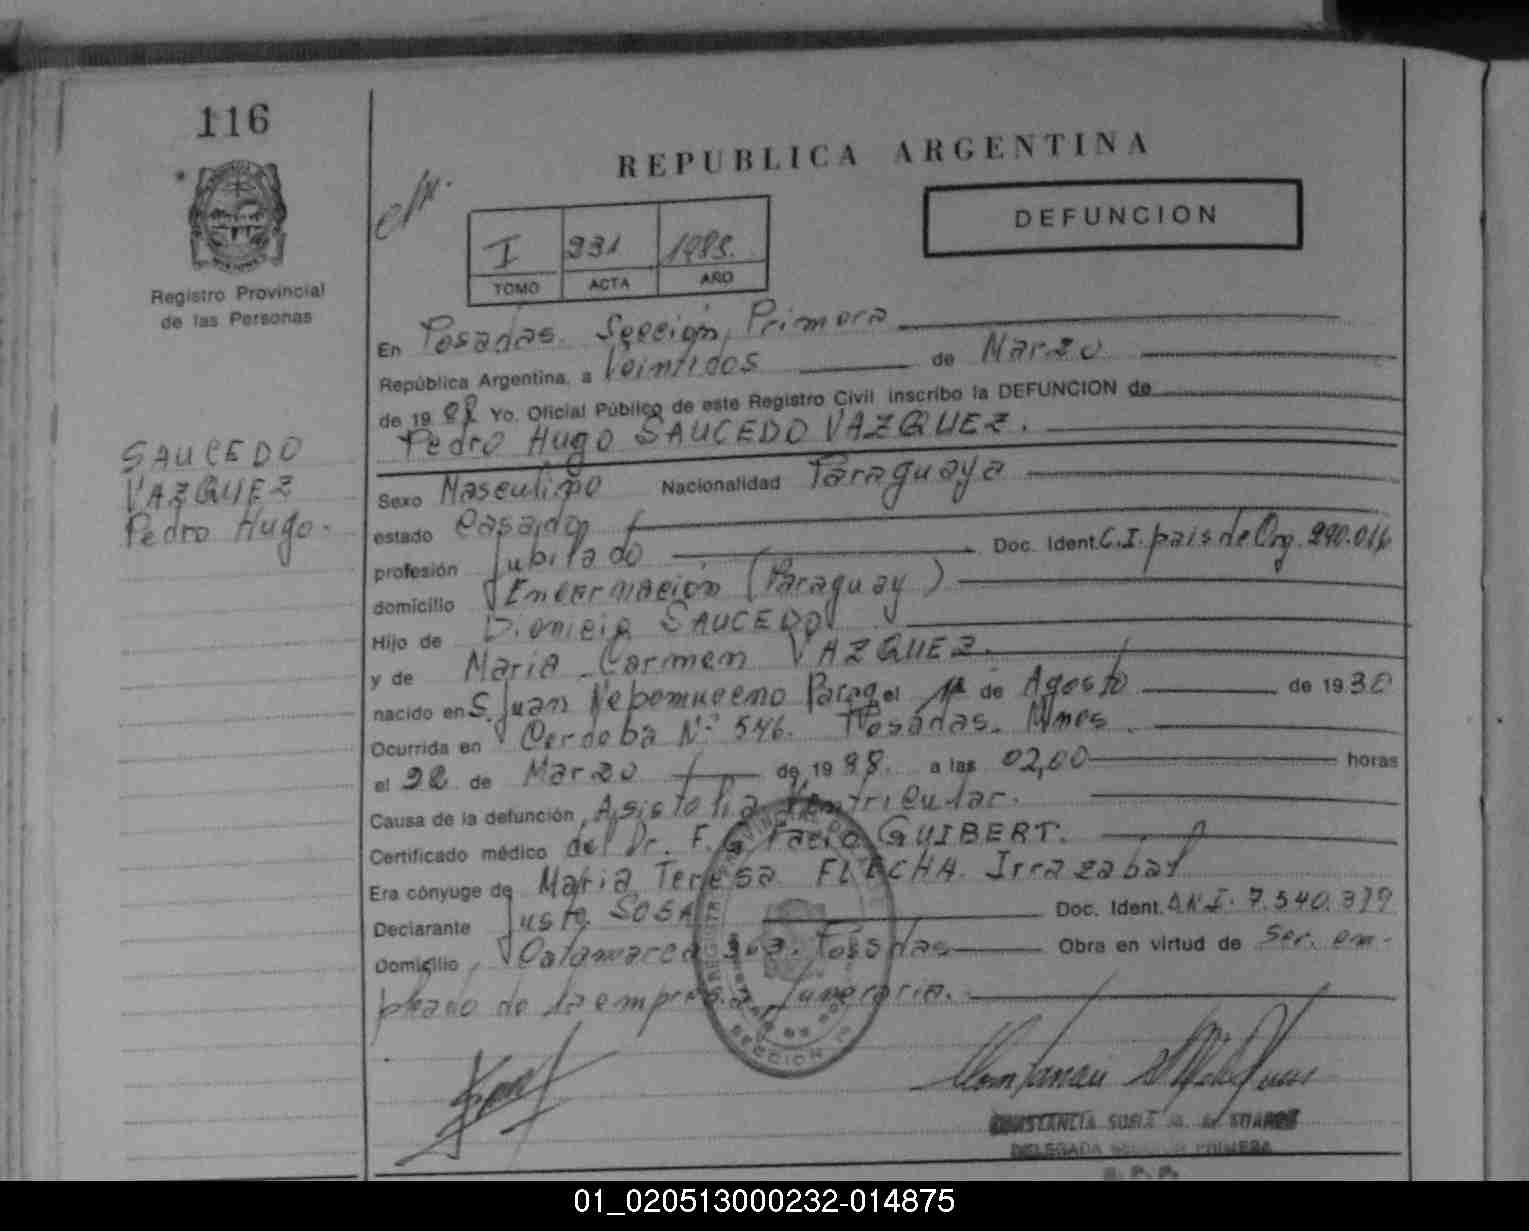 116
REPUBLICA ARGENTINA
DEFUNCION
I 231
TOMO ACTA AÑO
Registro Provincial
de las Personas
En Posadas. Sección Primera
República Argentina, a Veintidos de Marzo
de 19 88 Yo. Oficial Público de este Registro Civil inscribo la DEFUNCION de
Pedro Hugo SAUCEDO VAZQUEZ.
SAUCEDO
VAZQUEZ
Pedro Hugo.
Sexo Masculino Nacionalidad Paraguaya
estado Casado
profesión Jubilado Doc. Ident. C.I. pais de Org. 290.016
domicilio Encarnación (Paraguay)
Hijo de SAUCEDO
y de Maria Carmen VAZQUEZ.
nacido en S. Juan Nepomuceno Parag el 1º de Agosto de 19 30
Ocurrida en Cordoba Nº 546. Posadas. Mnes.
el 22 de Marzo de 19 88. a las 02,00 horas
Causa de la defunción Asistolia Ventricular.
Certificado médico del Dr. F. GUIBERT.
Era cónyuge de Maria Teresa FLECHA Irrazabal
Declarante Justo SOSA Doc. Ident. D.N.I. 7.540.379
Domicilio Catamarca 363. Posadas Obra en virtud de Ser. em-
pleado de la empresa funeraria.
REGISTRO PROVINCIAL DE
SECCION
CONSTANCIA DE SUAREZ
DELEGADA PRIMERA
01_020513000232-014875